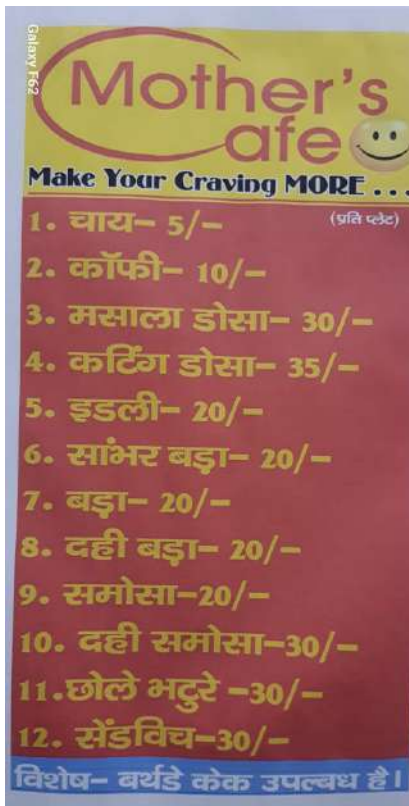 Galaxy F62
Mother's
Cafe
Make Your Craving MORE . . .
(प्रति प्लेट)
1. चाय– 5/–
2. कॉफी– 10/–
3. मसाला डोसा– 30/–
4. कटिंग डोसा– 35/–
5. इडली– 20/–
6. सांभर बड़ा– 20/–
7. बड़ा– 20/–
8. दही बड़ा– 20/–
9. समोसा–20/–
10. दही समोसा–30/–
11.छोले भटुरे –30/–
12. सेंडविच–30/–
विशेष– बर्थडे केक उपल्बध है।